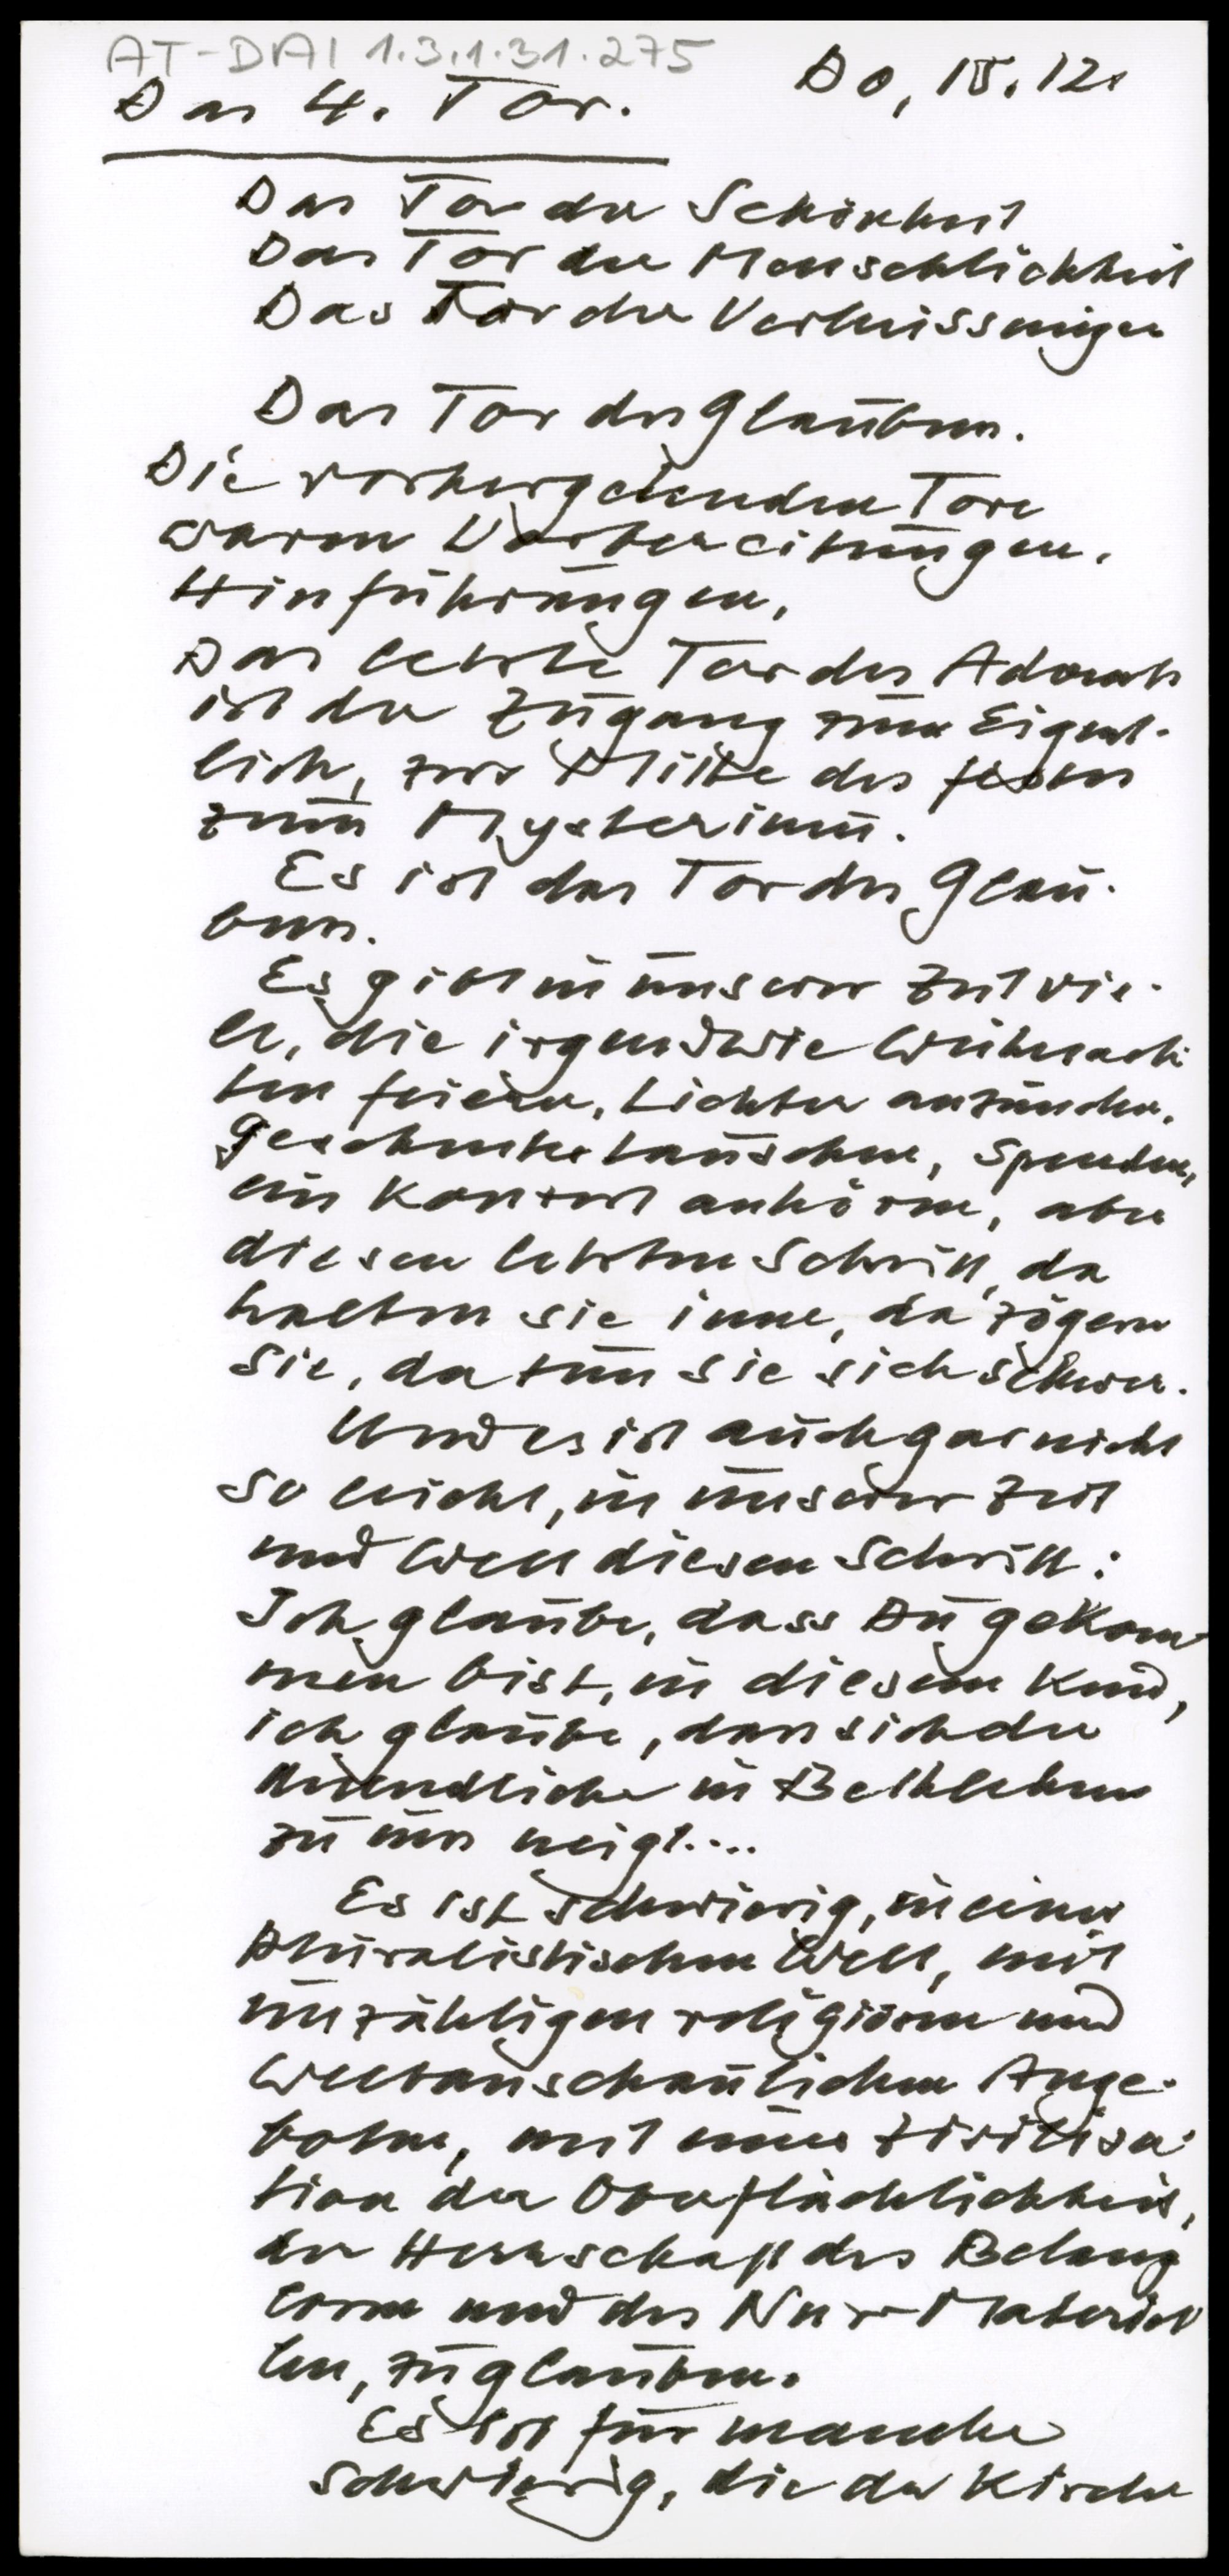 AT-DAI 1.3.1.31.275
Do, 15.12.
Das 4. Tor.
Das Tor der Schönheit
Das Tor der Menschlichkeit
Das Tor der Verheissungen
Das Tor des Glaubens.
Die vorhergehenden Tore
waren Vorbereitungen,
Hinführungen,
Das letzte Tor des Advents
ist der Zugang zum Eigent-
lich, zur Mitte des Festes
zum Mysterium.
Es ist das Tor des Glau-
bens.
Es gibt in unserer Zeit vie-
le, die irgendwie Weihnach-
ten feiern, Lichter anzünden,
Geschenke tauschen, Spenden,
ein Konzert anhören, aber
diesen letzten Schritt, da
halten sie inne, da zögern
sie, da tun sie sich schwer.
Und es ist auch gar nicht
so leicht, in unserer Zeit
und Welt diesen Schritt:
Ich glaube, dass Du gekom-
men bist, in diesem Kind,
ich glaube, dass sich der
Unendliche in Bethlehem
zu uns neigt....
Es ist schwierig, in einer
pluralistischen Welt, mit
unzähligen religiösen und
weltanschaulichen Ange-
boten, mit einer Zivilisa-
tion der Oberflächlichkeit,
der Herrschaft des Belang
losen und des Nur-Materiel
len, zu glauben.
Es ist für manche
schwierig, die der Kirche